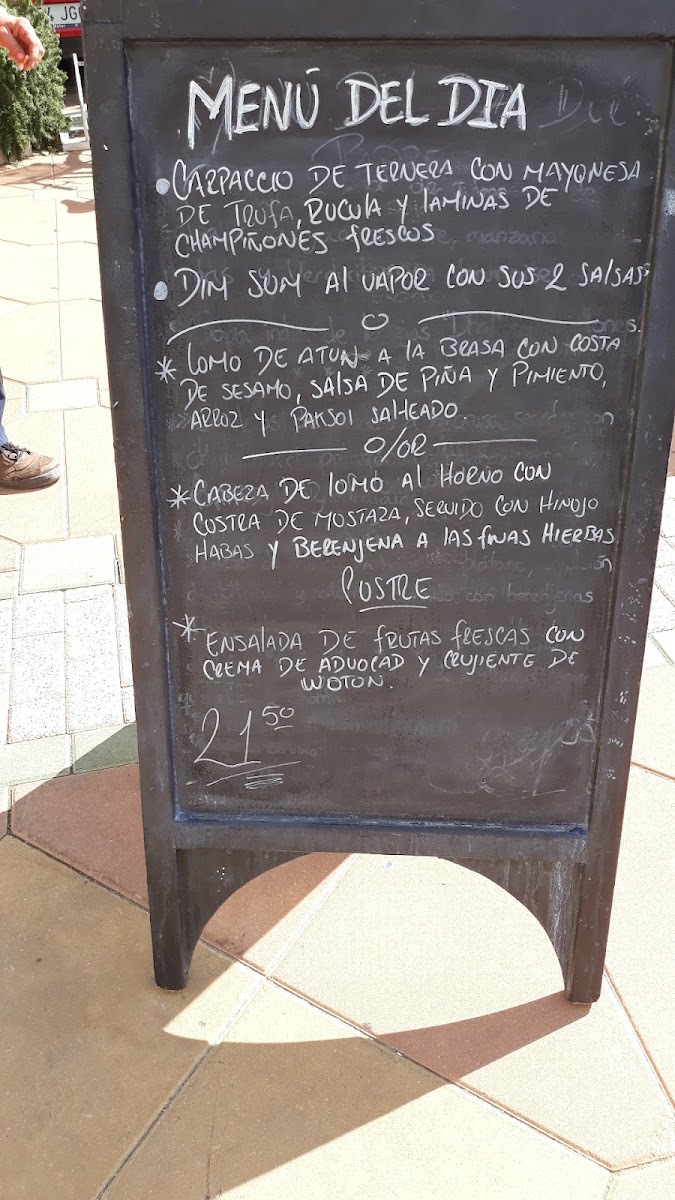 JG
MENÚ DEL DIA
• CARPACCIO DE TERNERA CON MAYONESA
DE TRUFA, RUCULA Y LAMINAS DE
CHAMPIÑONES FRESCOS
• DIM SUM AL VAPOR CON SUS 2 SALSAS
O
* LOMO DE ATUN A LA BRASA CON COSTA
DE SESAMO, SALSA DE PIÑA Y PIMIENTO,
ARROZ Y PAKSOI SALTEADO.
O/OR
* CABEZA DE LOMO AL HORNO CON
COSTRA DE MOSTAZA, SERVIDO CON HINOJO
HABAS Y BERENJENA A LAS FINAS HIERBAS
POSTRE
* ENSALADA DE FRUTAS FRESCAS CON
CREMA DE ADVOCAD Y CRUJIENTE DE
WOTON.
21 50